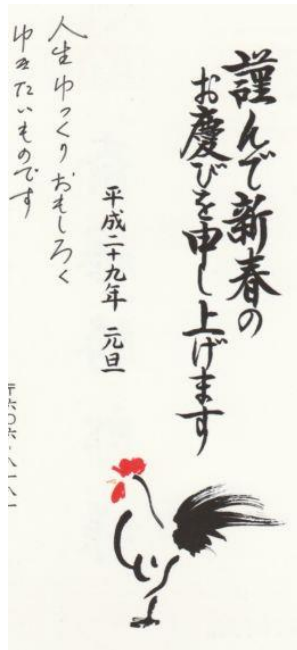 謹んで新春の
お慶びを申し上げます
平成二十九年 元旦
人生ゆっくりおもしろく
ゆきたいものです